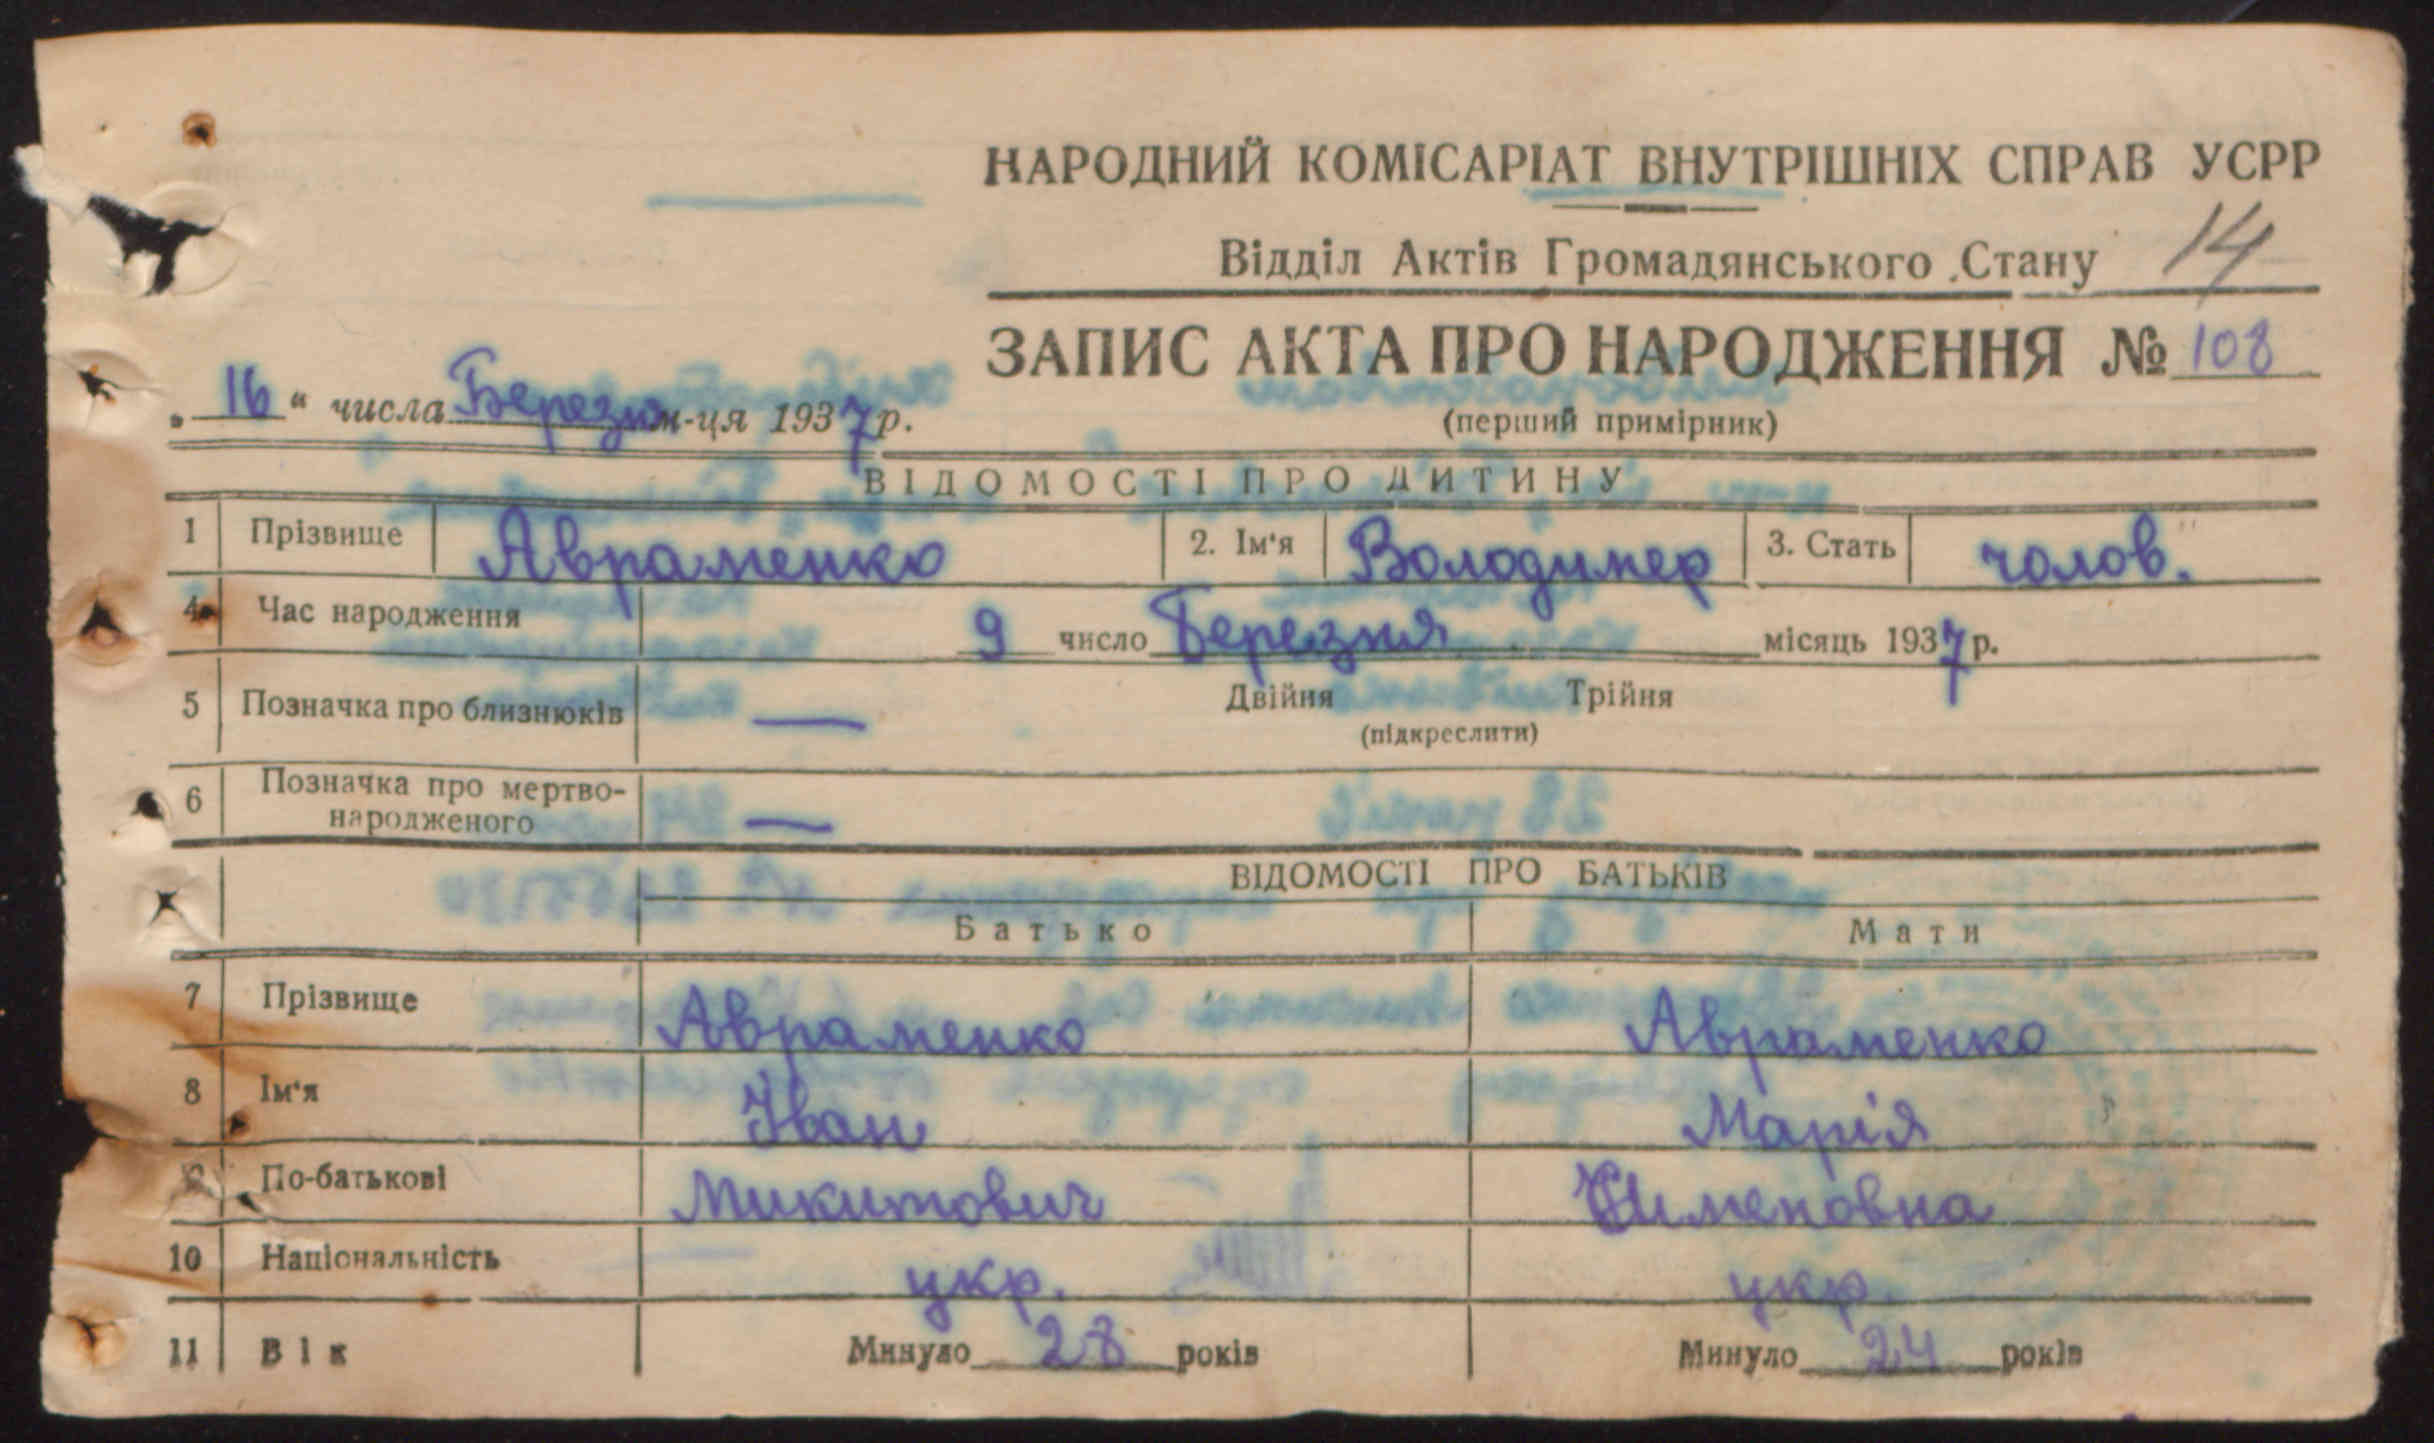 НАРОДНИЙ КОМІСАРІАТ ВНУТРІШНІХ СПРАВ УСРР
Відділ Актів Громадянського Стану 14
ЗАПИС АКТА ПРО НАРОДЖЕННЯ № 108
„ 16 “ числа Березня м-ця 1937 р.
(перший примірник)
ВІДОМОСТІ ПРО ДИТИНУ
1 Прізвище Авраменко 2. Ім‘я Володимер 3. Стать чолов.
4 Час народження 9 число Березня місяць 1937 р.
5 Позначка про близнюків — Двійня Трійня
(підкреслити)
6 Позначка про мертво-
народженого —
ВІДОМОСТІ ПРО БАТЬКІВ
Батько Мати
7 Прізвище Авраменко Авраменко
8 Ім‘я Іван Марія
9 По-батькові Микитович
10 Національність укр. укр.
11 Вік Минуло 28 років Минуло 24 років